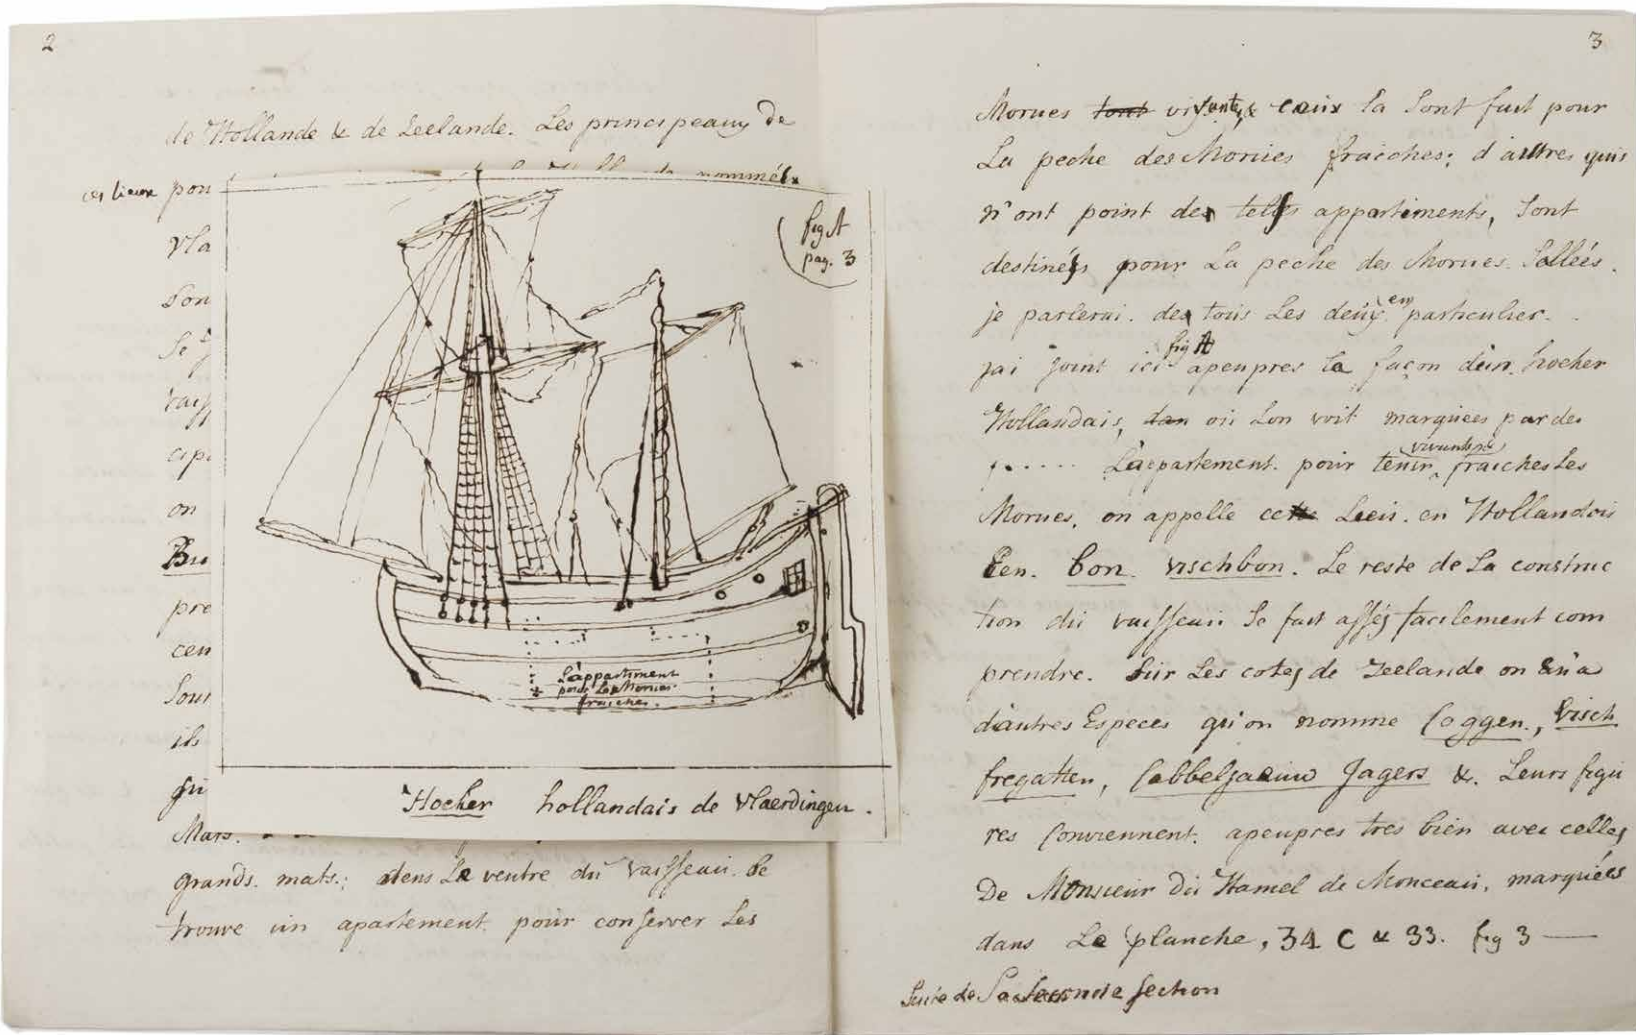 2
de Hollande & de Zeelande. Les principeaux de
nommées
ces lieux pou
vla
Son
Se
vaiss
cipa
on
Bu
pre
cen
Sous
ils
gu
Mars.
grands. mats.; dens Le ventre du vaisseau. Se
trouve un apartement pour conserver Les
fig A
pag. 3
L'appartiment
pour Les Morues
fraiches.
Hocker hollandais de Vlaerdingen.
3
Morues tout vivante, & ceux la Sont fait pour
La peche des Morues fraiches; d'autres quis
n'ont point des tells appartiments, Sont
destinées pour La peche des Morues. Sallées.
je parlerai. des tous Les deux en particulier.
jai joint ici fig A apeupres la façon d'un hocker
Hollandais, dan où Lon voit marquées par des
...... L'appartement. pour tenir vivantes & fraiches Les
Morues, on appelle cette Lieu. en Hollandois
Een. bon. vischbon. Le reste de La construc
tion du vaisseau Se fait assés facilement com
prendre. Sur Les cotes de Zeelande on en a
d'autres Especes qu'on nomme Coggen., Visch
fregatten, Cabbeljaauw Jagers &. Leurs figu
res Conviennent. apeupres tres bien avec celles
De Monsieur Du Hamel de Monceau, marquées
dans La planche, 34 C & 33. fig 3 —
Suite de La Seconde Section